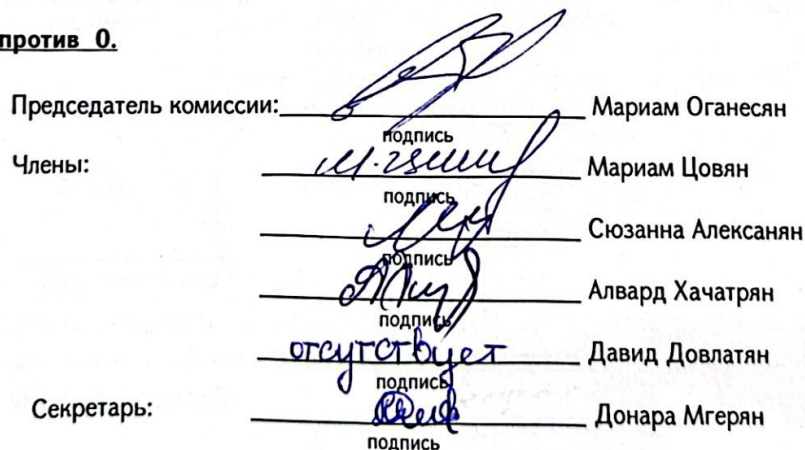 против 0.
Председатель комиссии: Мариам Оганесян
подпись
Члены: Мариам Цовян
подпись
Сюзанна Алексанян
подпись
Алвард Хачатрян
подпись
отсутствует Давид Довлатян
подпись
Секретарь: Донара Мгерян
подпись